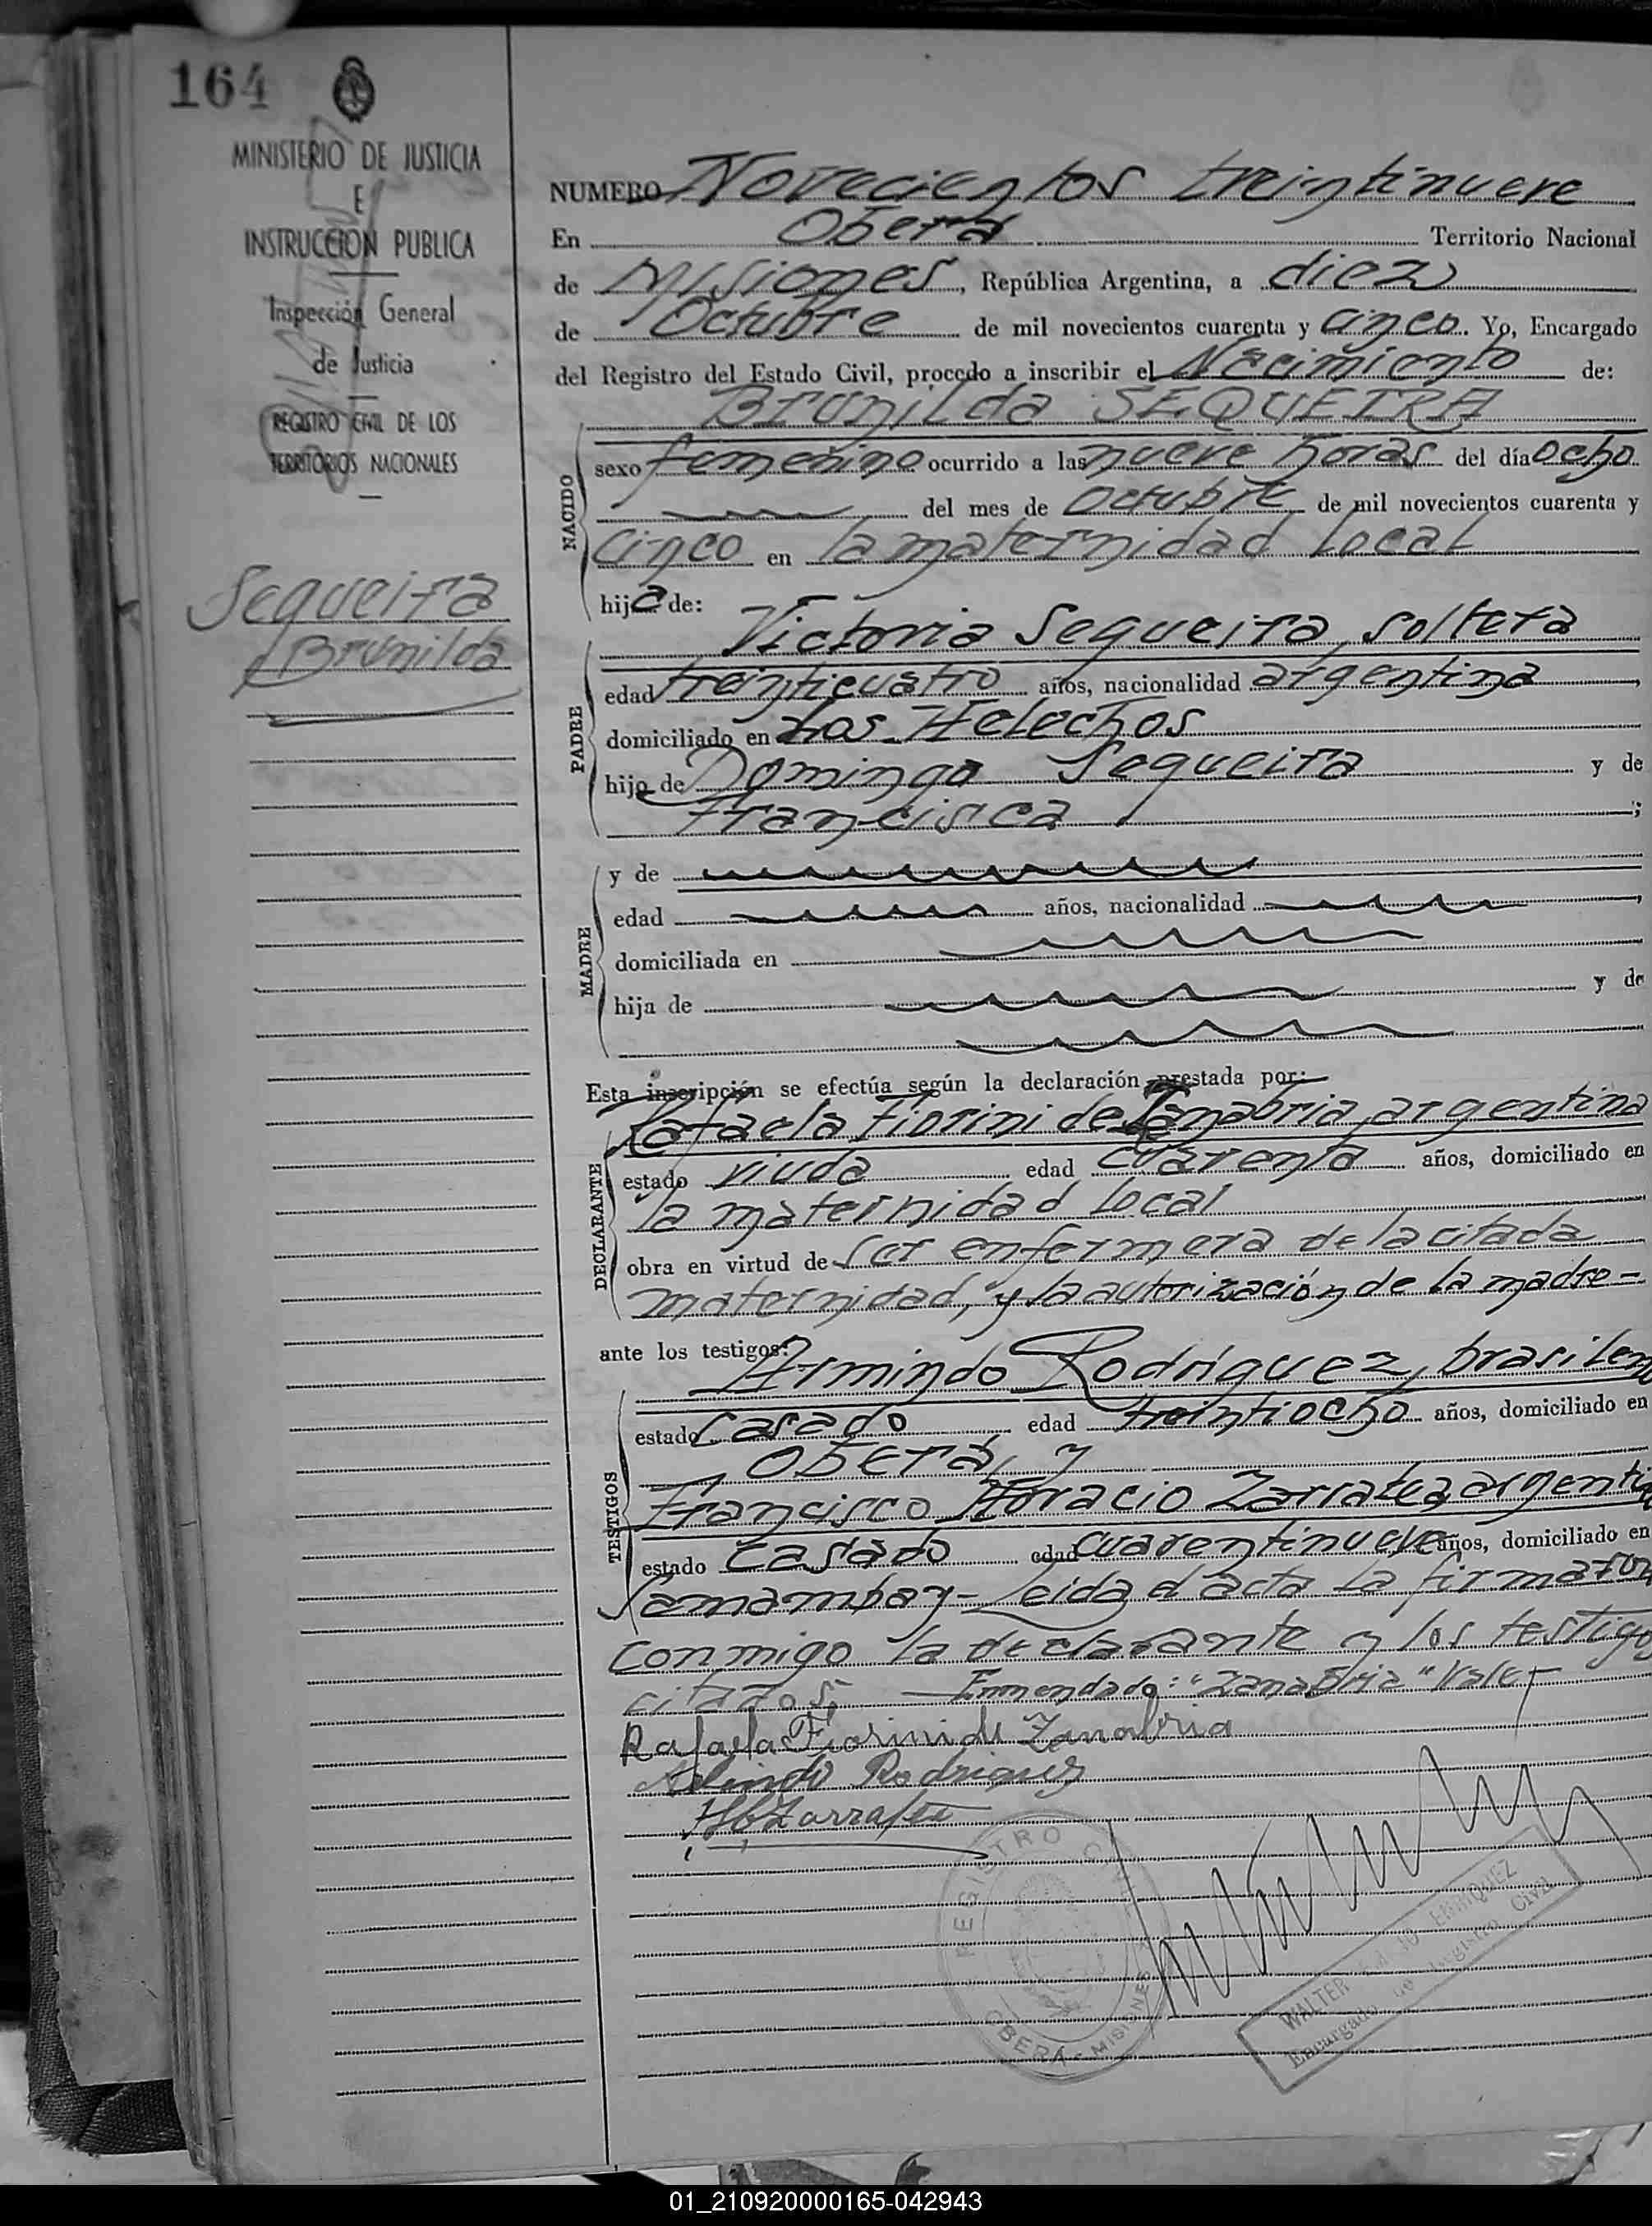 164
MINISTERIO DE JUSTICIA
E
INSTRUCCION PUBLICA
Inspección General
de Justicia
REGISTRO CIVIL DE LOS
TERRITORIOS NACIONALES
Sequeira
Brunilda
NUMERO Novecientos treintinueve
En Oberá Territorio Nacional
de Misiones, República Argentina, a diez
de Octubre de mil novecientos cuarenta y cinco. Yo, Encargado
del Registro del Estado Civil, procedo a inscribir el Nacimiento de:
Brunilda SEQUEIRA
NACIDO
sexo femenino ocurrido a las nueve horas del día ocho
del mes de Octubre de mil novecientos cuarenta y
cinco en la maternidad local
hija de:
Victoria Sequeira, soltera
PADRE
edad treinticuatro años, nacionalidad argentina,
domiciliado en Los Helechos
hijo de Domingo Sequeira y de
Francisca;
MADRE
y de
edad años, nacionalidad,
domiciliada en
hija de y de
Esta inscripción se efectúa según la declaración prestada por:
Rafaela Fiorini de Zanabria, argentina
DECLARANTE
estado viuda edad cuarenta años, domiciliado en
la maternidad local
obra en virtud de ser enfermera de la citada
maternidad, y la autorización de la madre-
ante los testigos:
Armindo Rodríguez, brasilen
TESTIGOS
estado casado edad treintiocho años, domiciliado en
Oberá, y
Francisco Horacio Zarratea, argenti
estado casado edad cuarentinueve años, domiciliado en
Samambay- Leida el acta la firmaron
conmigo la declarante y los testigo
citados. - Enmendado: "Zanabria" Vale-
Rafaela Fiorini de Zanabria
Rodriguez
Zarratea
REGISTRO CIVIL
OBERA - MISIONES
WALTER ENRIQUEZ
Encargado de Registro Civil
01_210920000165-042943